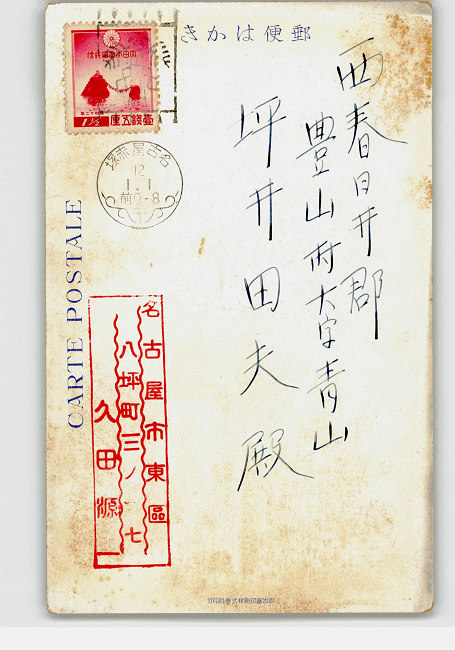 きかは便郵
西春日井郡
豊山村大字青山
坪井田夫殿
壹銭五厘
1½
名古屋赤塚
12
1.1
前0-8
CARTE POSTALE
名古屋市東區
八坪町三ノ七
久田源一